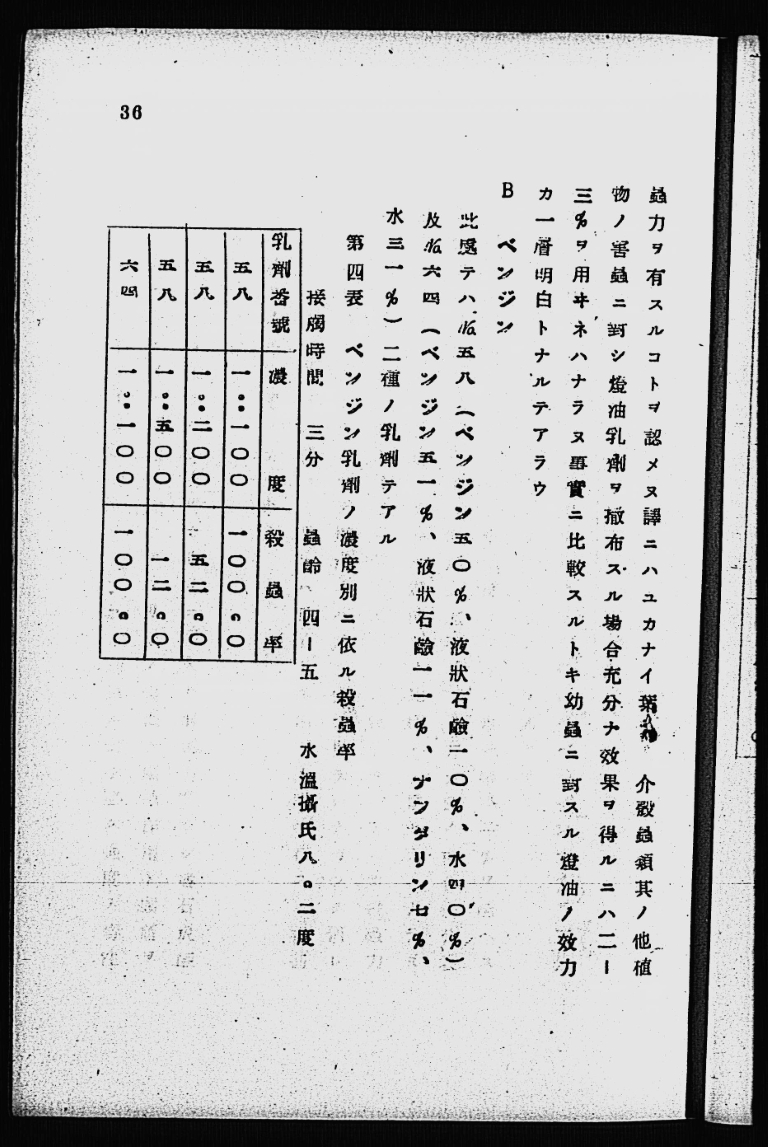 36
蟲力ヲ有スルコトヲ認メヌ譯ニハユカナイ葉 介殼蟲類其ノ他植
物ノ害蟲ニ對シ燈油乳劑ヲ撒布スル場合充分ナ效果ヲ得ルニハ二ー
三%ヲ用ヰネハナラヌ事實ニ比較スルトキ幼蟲ニ對スル燈油ノ效力
カ一層明白トナルテアラウ
B ベンジン
此處テハ㍶五八(ベンジン五〇%、液狀石鹼一〇%、水四〇%)
及㍶六四(ベンジン五一%、液狀石鹼一一%、ナフタリン七%、
水三一%)二種ノ乳劑テアル
第四表 ベンジン乳劑ノ濃度別ニ依ル殺蟲率
接觸時間 三分 蟲齡 四ー五 水溫攝氏八。二度
乳劑番號 濃度 殺蟲率
五八 一::一〇〇 一〇〇。〇
五八 一::二〇〇 五二。〇
五八 一::五〇〇 一二。〇
六四 一::一〇〇 一〇〇。〇